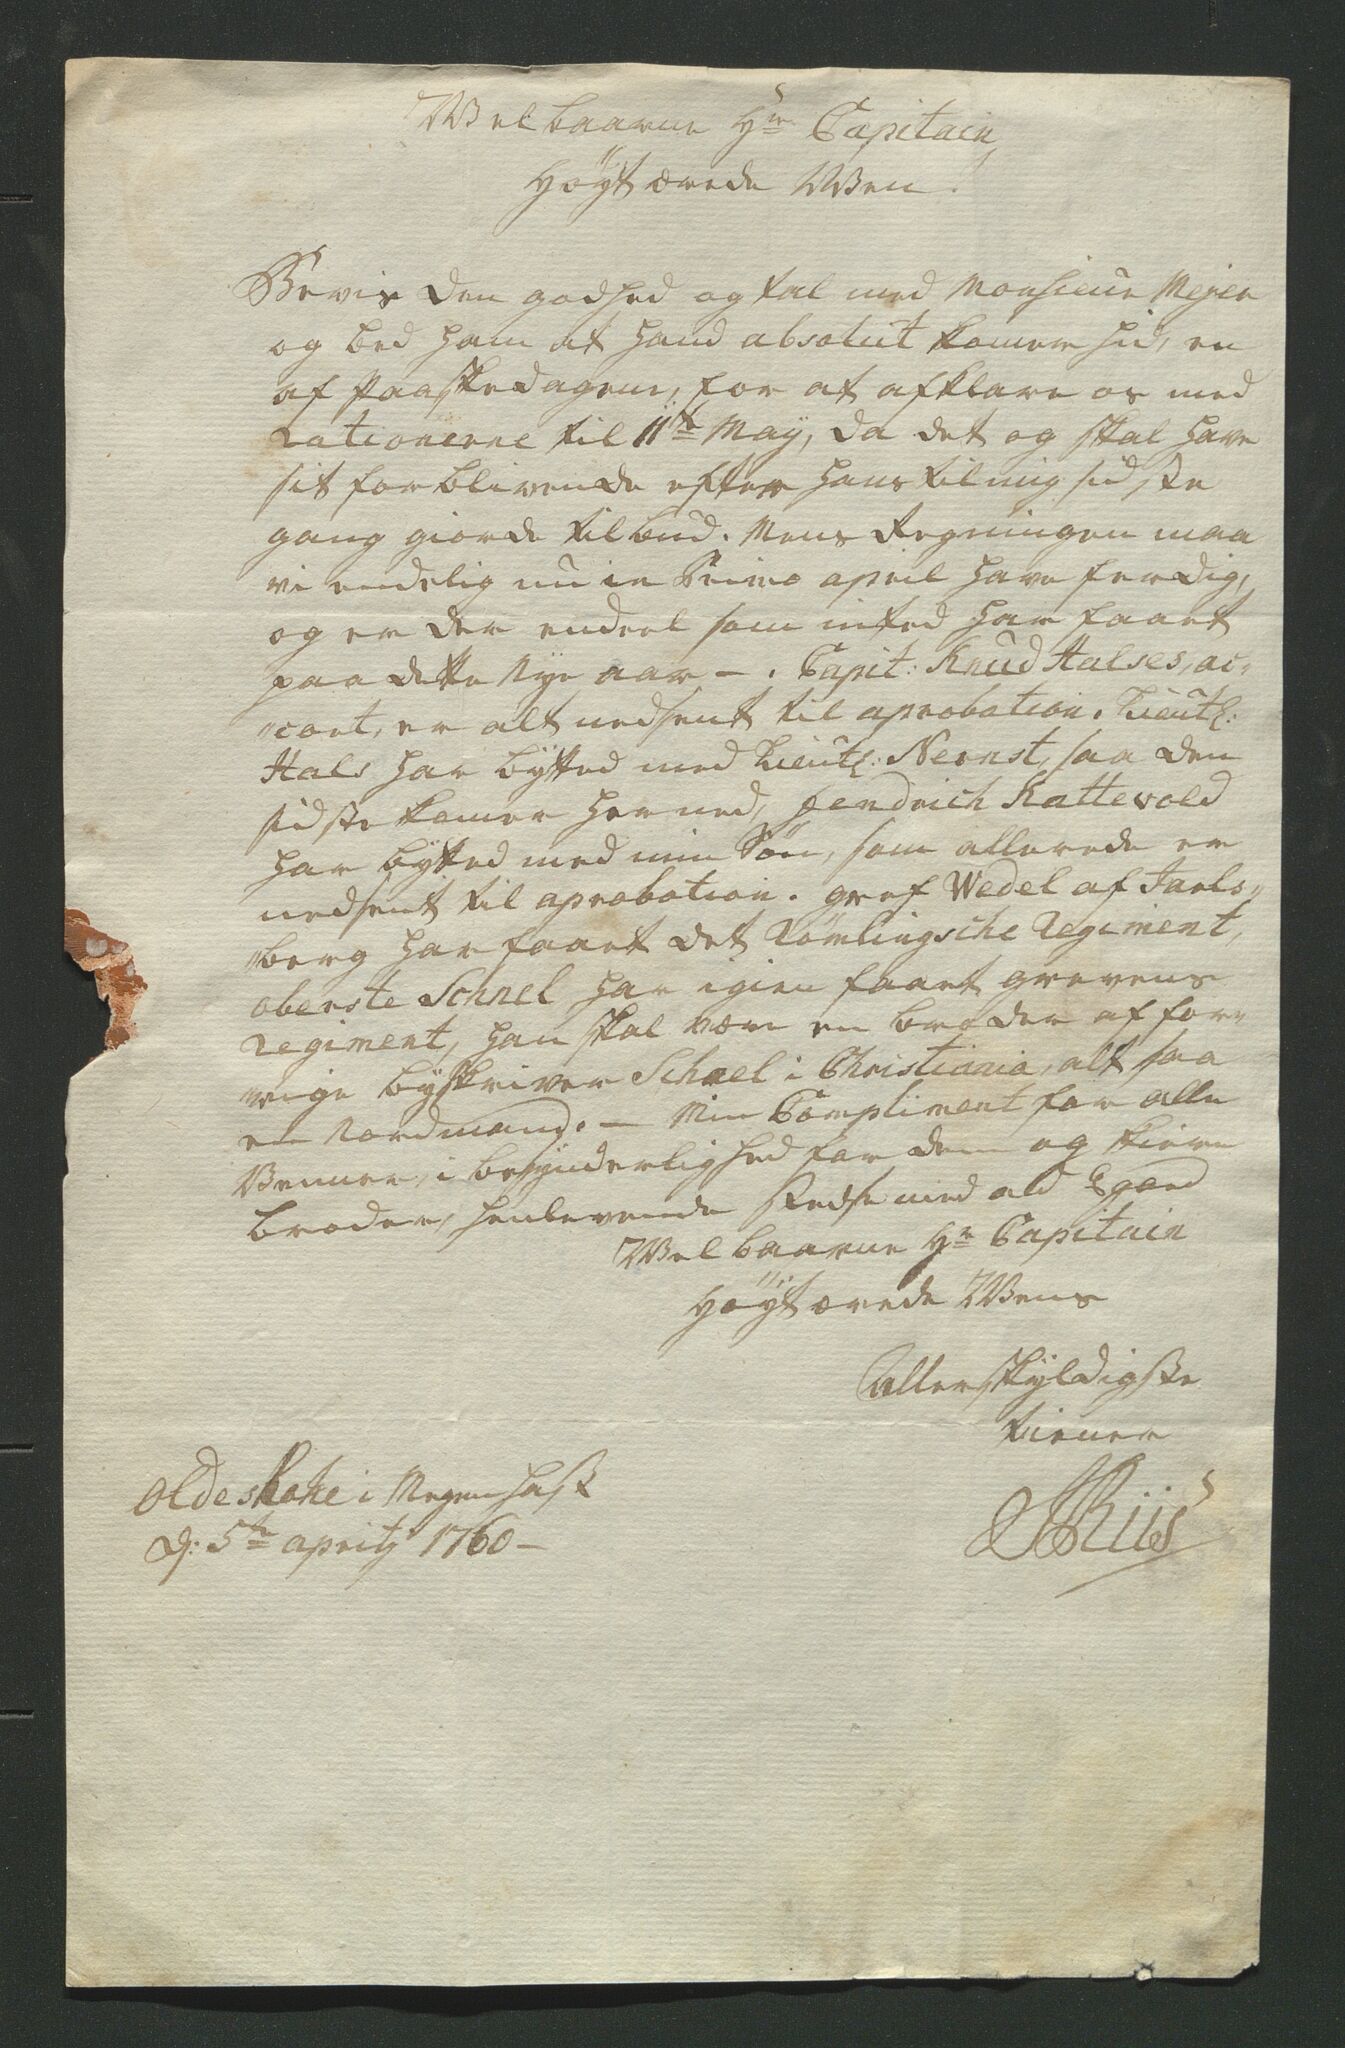 Welbaarne Hr Capitain,
Höyt ærede Wen!
Bevis den godhed og tal med Monsieur Mejer
og bed ham at hand absolut komer hid, en
af Paaskedagene, for at afklare os med
Rationerne til 11te Maÿ, da det og skal have
sit forblivende efter hans til mig sidste
gang giorde tilbud. Mens Regningen maa
vi endelig nu in Primo april have ferdig,
og er der endeel som inted har faaet
paa dette Nye aar – . Capit: Knud Halses, ac-
cort, er alt nedsent til aprobation. Lieut:
Hals har bÿtted med Lieut: Nernst, saa den
sidste komer herned, Hendrich Kattevold
har bÿtted med min Sön, som allerede er
nedsent til aprobation. gref Wedel af Jarls-
berg har faaet det Römlingsche Regiment,
oberste Schnel har igien faaet grevens
Regiment, han skal være en broder af for-
rige bÿskriver Schnel i Christiania, alt saa
en Nordmand. – Min Compliment for alle
Venner, i besÿnderlighed for dem og kiere
broder, henlevende stedse med all Egard
Welbaarne Hr Capitain
Höÿt ærede Wens
Allerskÿldigste
tiener
Riis
Oldeslohe i Megen hast
d: 5te april 1760 –